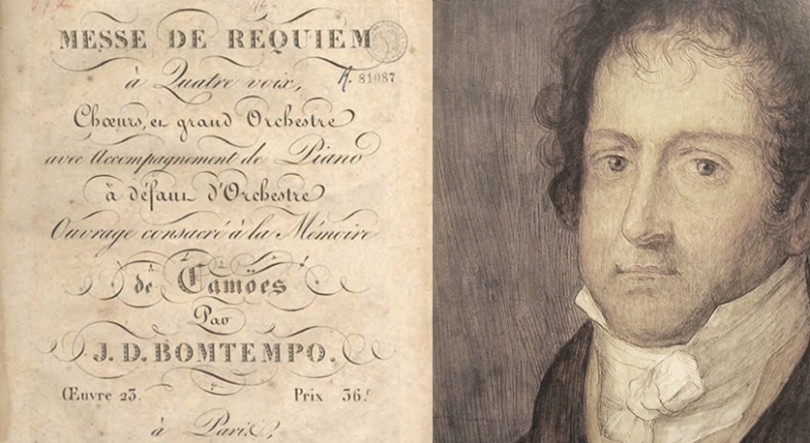 MESSE DE REQUIEM
à Quatre voix,
81087
Chœurs, et grand Orchestre
avec Accompagnement de Piano
à défaut d'Orchestre
Ouvrage consacré à la Mémoire
de Camöes
Par
J. D. BOMTEMPO.
Œuvre 23. Prix 36.f
à Paris,